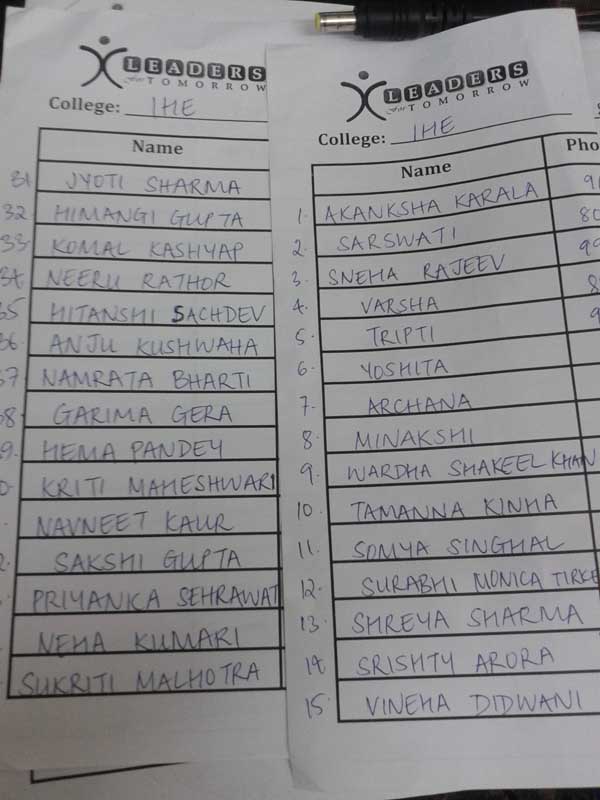 LEADERS
for TOMORROW
College: IHE
Name
31 JYOTI SHARMA
32. HIMANGI GUPTA
33. KOMAL KASHYAP
34 NEERU RATHOR
35 HITANSHI SACHDEV
36. ANJU KUSHWAHA
37 NAMRATA BHARTI
38 GARIMA GERA
39. HEMA PANDEY
KRITI MAHESHWARI
NAVNEET KAUR
SAKSHI GUPTA
PRIYANKA SEHRAWAT
NEHA KUMARI
SUKRITI MALHOTRA
LEADERS
for TOMORROW
College: IHE
Name Pho
1. AKANKSHA KARALA
2. SARSWATI 80
3. SNEHA RAJEEV 99
4. VARSHA
5. TRIPTI
6. YOSHITA
7. ARCHANA
8. MINAKSHI
9. WARDHA SHAKEEL KHAN
10. TAMANNA KINHA
11. SOMYA SINGHAL
12. SURABHI MONICA TIRKE
13. SHREYA SHARMA
14 SRISHTY ARORA
15. VINEHA DIDWANI